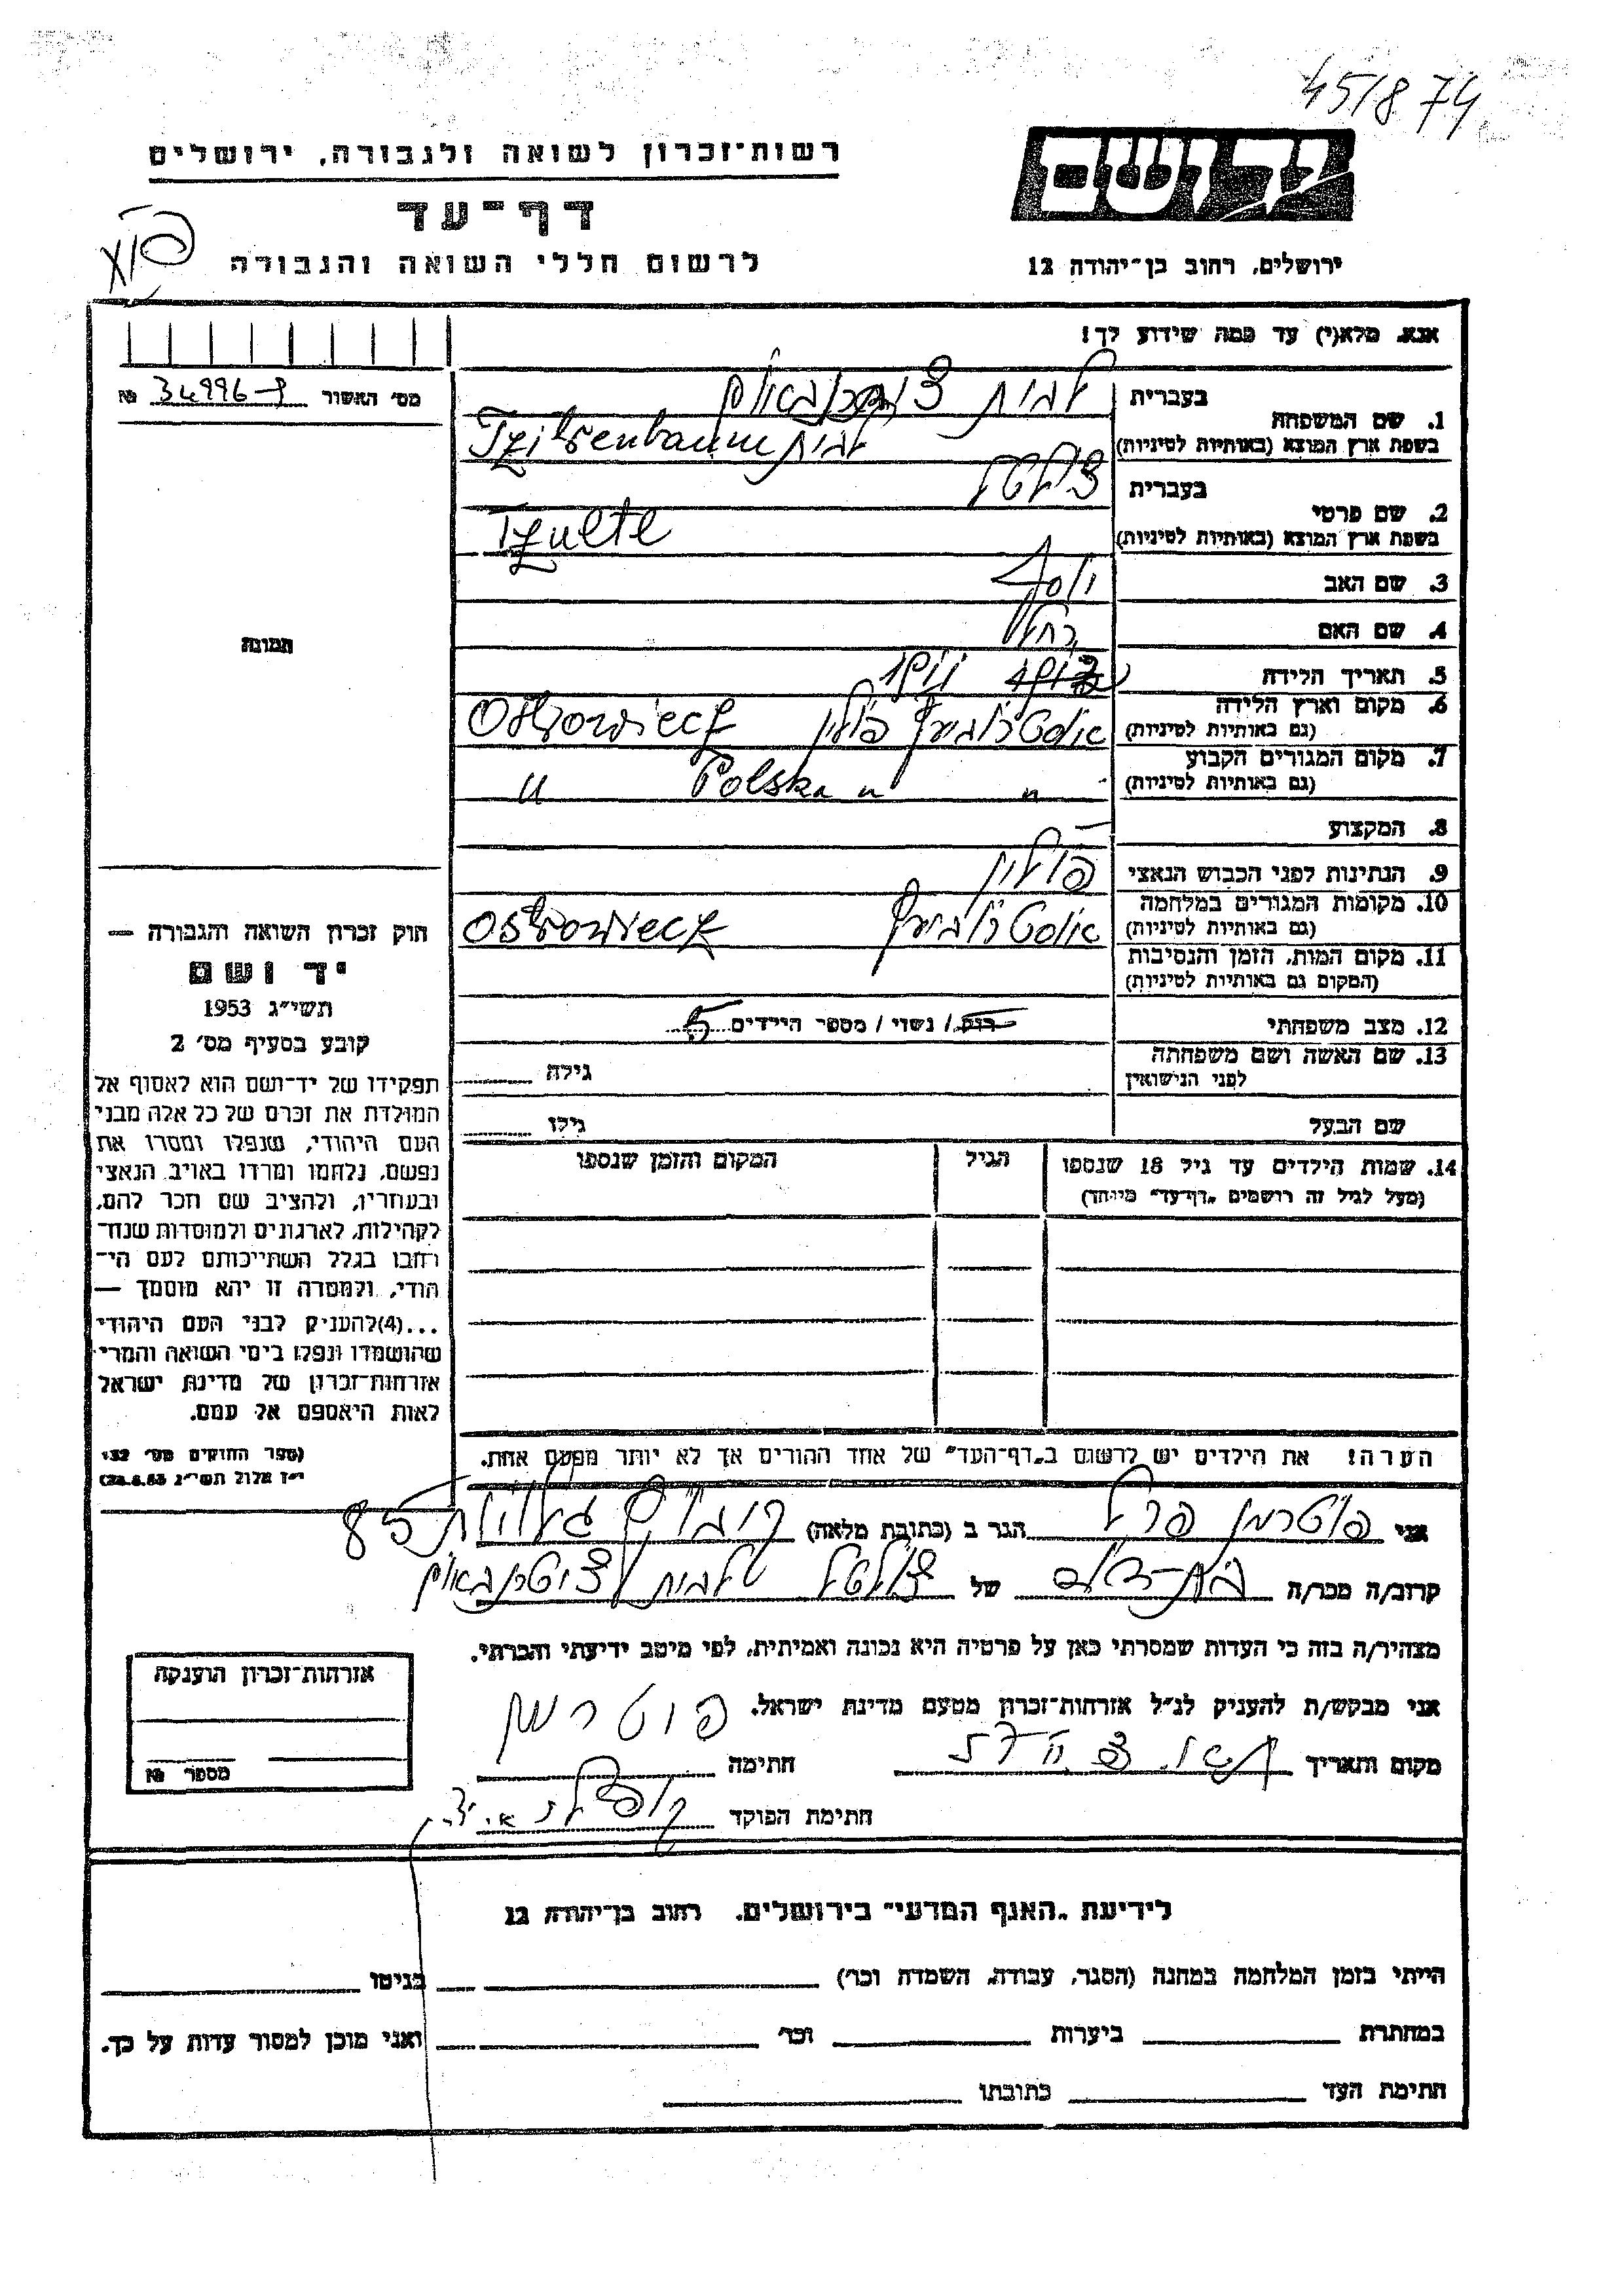 451874
רשות־זכרון לשואה ולגבורה, ירושלים
יד ושם
דף־עד
לרשום חללי השואה והגבורה
ירושלים, רחוב בן־יהודה 12
אנא, מלא(י) עד כמה שידוע לך!
מס׳ האשור № 34996-
1. שם המשפחה
בעברית לבית
בשפת ארץ המוצא (באותיות לטיניות) לבית
2. שם פרטי
בעברית צולטל
בשפת ארץ המוצא (באותיות לטיניות) Tzultl
3. שם האב יוסף
4. שם האם רחל
5. תאריך הלידה
6. מקום וארץ הלידה
(גם באותיות לטיניות) פולין Ostrowieck
7. מקום המגורים הקבוע
(גם באותיות לטיניות) " " Polska "
8. המקצוע —
9. הנתינות לפני הכבוש הנאצי פולין
10. מקומות המגורים במלחמה
(גם באותיות לטיניות) Ostrowieck
11. מקום המות, הזמן והנסיבות
(המקום גם באותיות לטיניות)
12. מצב משפחתי רוק / נשוי / מספר הילדים 5
13. שם האשה ושם משפחתה
לפני הנישואין גילה
שם הבעל גילו
14. שמות הילדים עד גיל 18 שנספו
(מעל לגיל זה רושמים „דף־עד״ מיוחד)
הגיל
המקום והזמן שנספו
תמונה
חוק זכרון השואה והגבורה —
יד ושם
תשי״ג 1953
קובע בסעיף מס׳ 2
תפקידו של יד־ושם הוא לאסוף אל
המולדת את זכרם של כל אלה מבני
העם היהודי, שנפלו ומסרו את
נפשם, נלחמו ומרדו באויב הנאצי
ובעוזריו, ולהציב שם וזכר להם,
לקהילות, לארגונים ולמוסדות שנח־
רבו בגלל השתייכותם לעם הי־
הודי, ולמטרה זו יהא מוסמך —
...(4) להעניק לבני העם היהודי
שהושמדו ונפלו בימי השואה והמרי
אזרחות־זכרון של מדינת ישראל
לאות היאספם אל עמם.
(ספר החוקים מס׳ 132,
י״ז אלול תשי״ג 28.8.53)
הערה! את הילדים יש לרשום ב„דף־העד״ של אחד ההורים אך לא יותר מפעם אחת.
אני פוטרמן פרל הגר ב (כתובת מלאה) קבוץ גלויות 85
קרוב/ה מכר/ה בת־דוד של צולטל לבית
מצהיר/ה בזה כי העדות שמסרתי כאן על פרטיה היא נכונה ואמיתית, לפי מיטב ידיעתי והכרתי.
אני מבקש/ת להעניק לנ״ל אזרחות־זכרון מטעם מדינת ישראל.
מקום ותאריך חתימה פוטרמן
חתימת הפוקד
אזרחות־זכרון הוענקה
מספר №
לידיעת „האגף המדעי״ בירושלים, רחוב בן־יהודה 12
הייתי בזמן המלחמה במחנה (הסגר, עבודה, השמדה וכו׳) בגיטו
במחתרת ביערות וכו׳ ואני מוכן למסור עדות על כך.
חתימת העד כתובתו